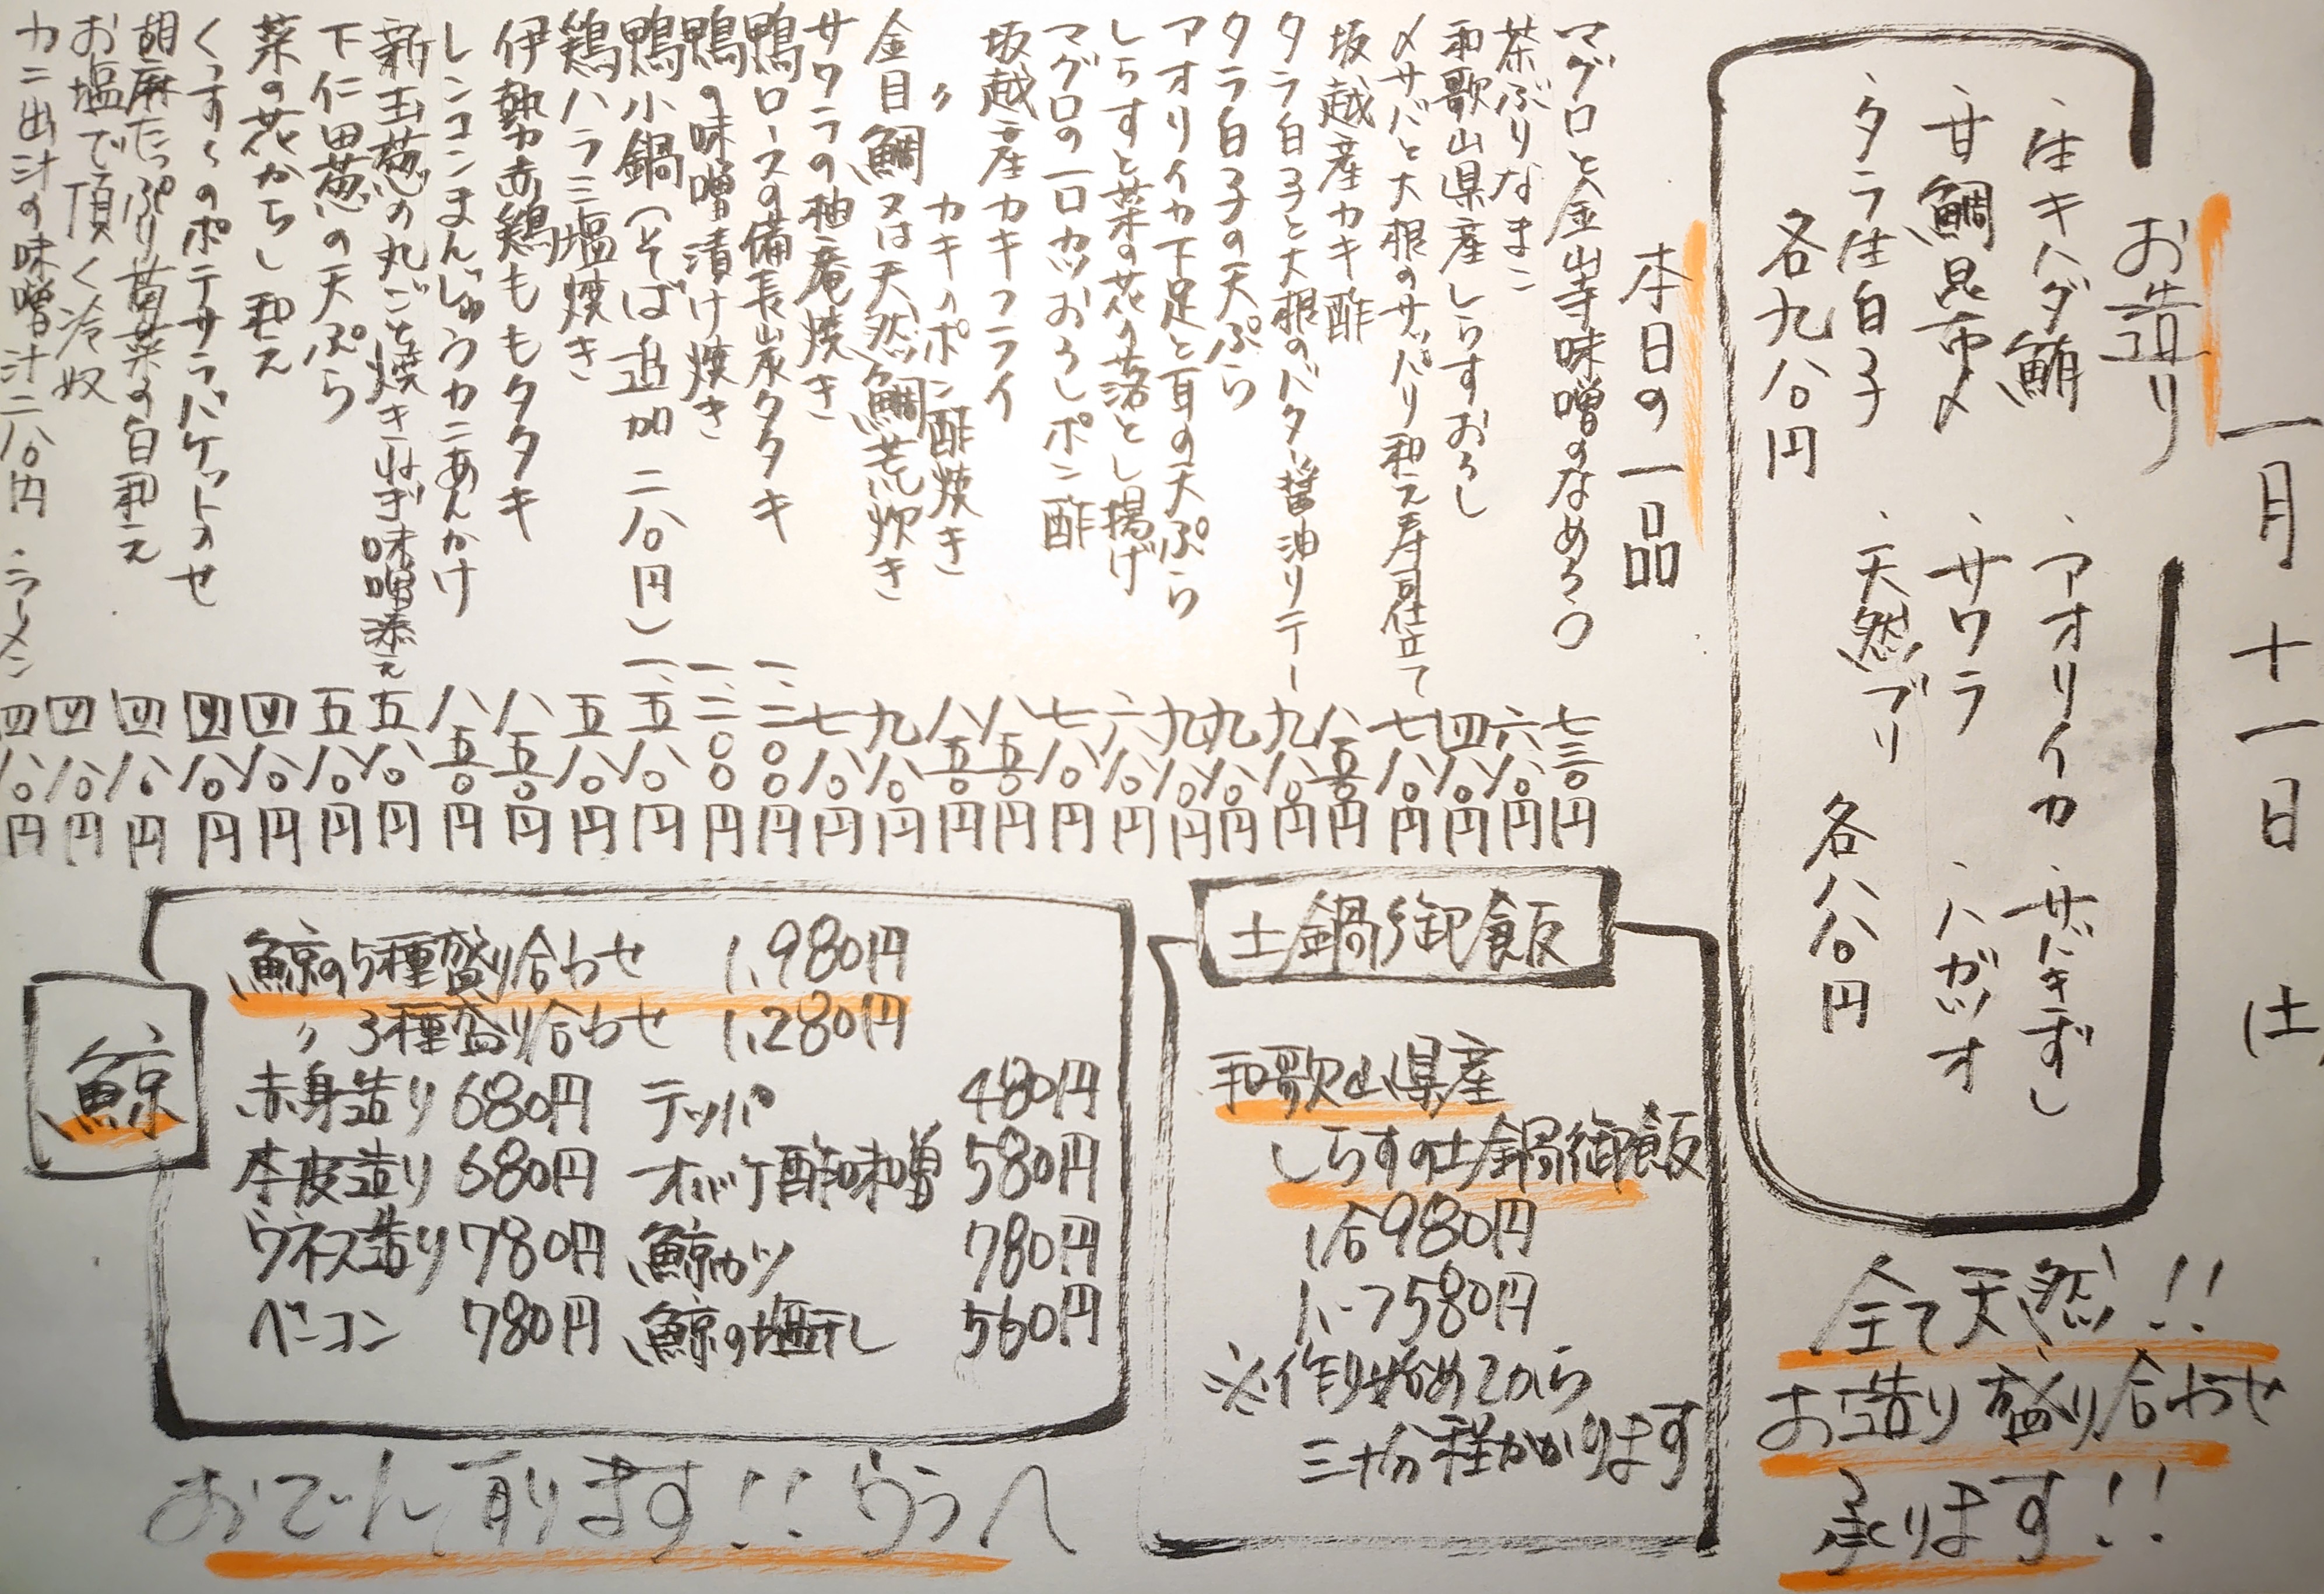 一月十一日 (土)
お造り
・生キハダ鮪
・甘鯛昆布〆
・タラ生白子
各九八〇円
・アオリイカ
・サワラ
・天然ブリ
・サバきずし
・ハガツオ
各八八〇円
全て天然!!
お造り盛り合わせ
承ります!!
本日の一品
マグロと金山寺味噌のなめろう 七三〇円
茶ぶりなまこ 六八〇円
和歌山県産しらすおろし 四八〇円
〆サバと大根のサッパリ和え寿司仕立て 七八〇円
坂越産カキ酢 八五〇円
タラ白子と大根のバター醤油ソテー 九八〇円
タラ白子の天ぷら 九八〇円
アオリイカ下足と耳の天ぷら 九八〇円
しらすと菜の花の落とし揚げ 六八〇円
マグロの一口カツおろしポン酢 七八〇円
坂越産カキフライ 八五〇円
〃 カキのポン酢焼き 八五〇円
金目鯛又は天然鯛荒炊き 九八〇円
サワラの柚庵焼き 七八〇円
鴨ロースの備長炭タタキ 一、二〇〇円
鴨の味噌漬け焼き 一、二〇〇円
鴨小鍋(そば追加二八〇円) 一、五八〇円
鶏ハラミ塩焼き 五八〇円
伊勢赤鶏ももタタキ 八五〇円
レンコンまんじゅうカニあんかけ 八五〇円
新玉葱の丸ごと焼きねぎ味噌添え 五八〇円
下仁田葱の天ぷら 五八〇円
菜の花からし和え 四八〇円
くっすんのポテサラバケットのせ 四八〇円
胡麻たっぷり菊菜の白和え 四八〇円
お塩で頂く冷奴 四八〇円
カニ出汁の味噌汁二八〇円 ラーメン 四八〇円
土鍋御飯
和歌山県産
しらすの土鍋御飯
1合980円
ハーフ580円
※作り始めてから
三十分程かかります
鯨
鯨の5種盛り合わせ 1,980円
〃 3種盛り合わせ 1,280円
赤身造り 680円 テッパ 480円
本皮造り 680円 オバケ酢味噌 580円
ウネス造り 780円 鯨カツ 780円
ベーコン 780円 鯨の塩干し 560円
おでん有ります!!うらへ